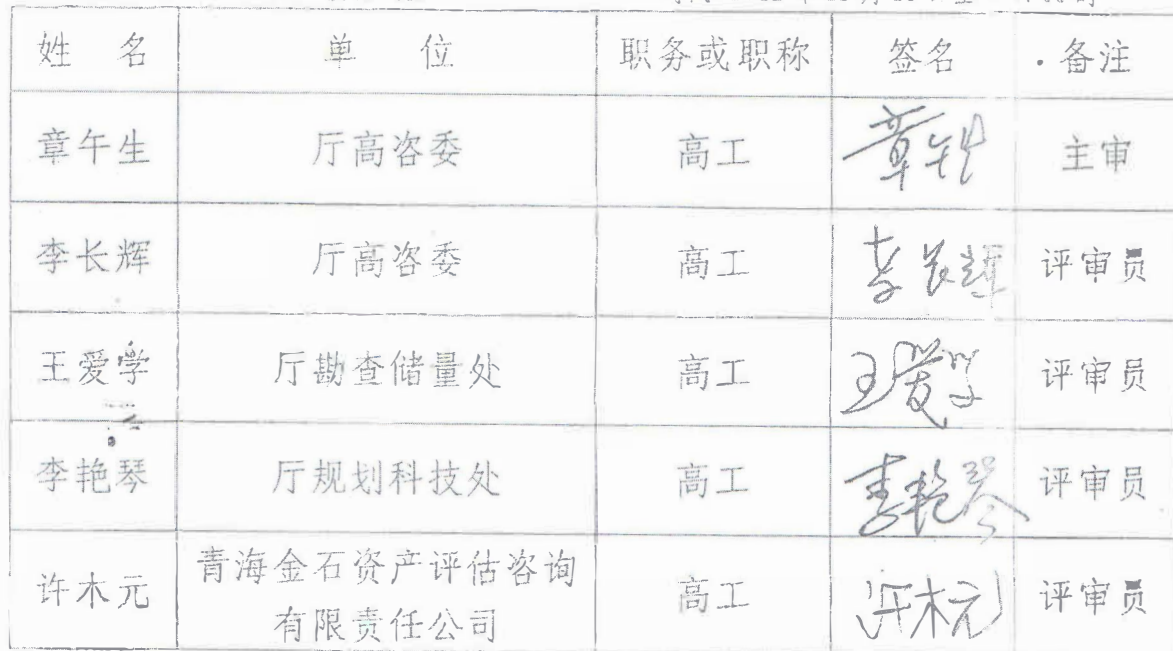 姓 名 单 位 职务或职称 签名 备注
章午生 厅高咨委 高工 章午生 主审
李长辉 厅高咨委 高工 李长辉 评审员
王爱学 厅勘查储量处 高工 王爱学 评审员
李艳琴 厅规划科技处 高工 李艳琴 评审员
许木元 青海金石资产评估咨询 高工 许木元 评审员
有限责任公司